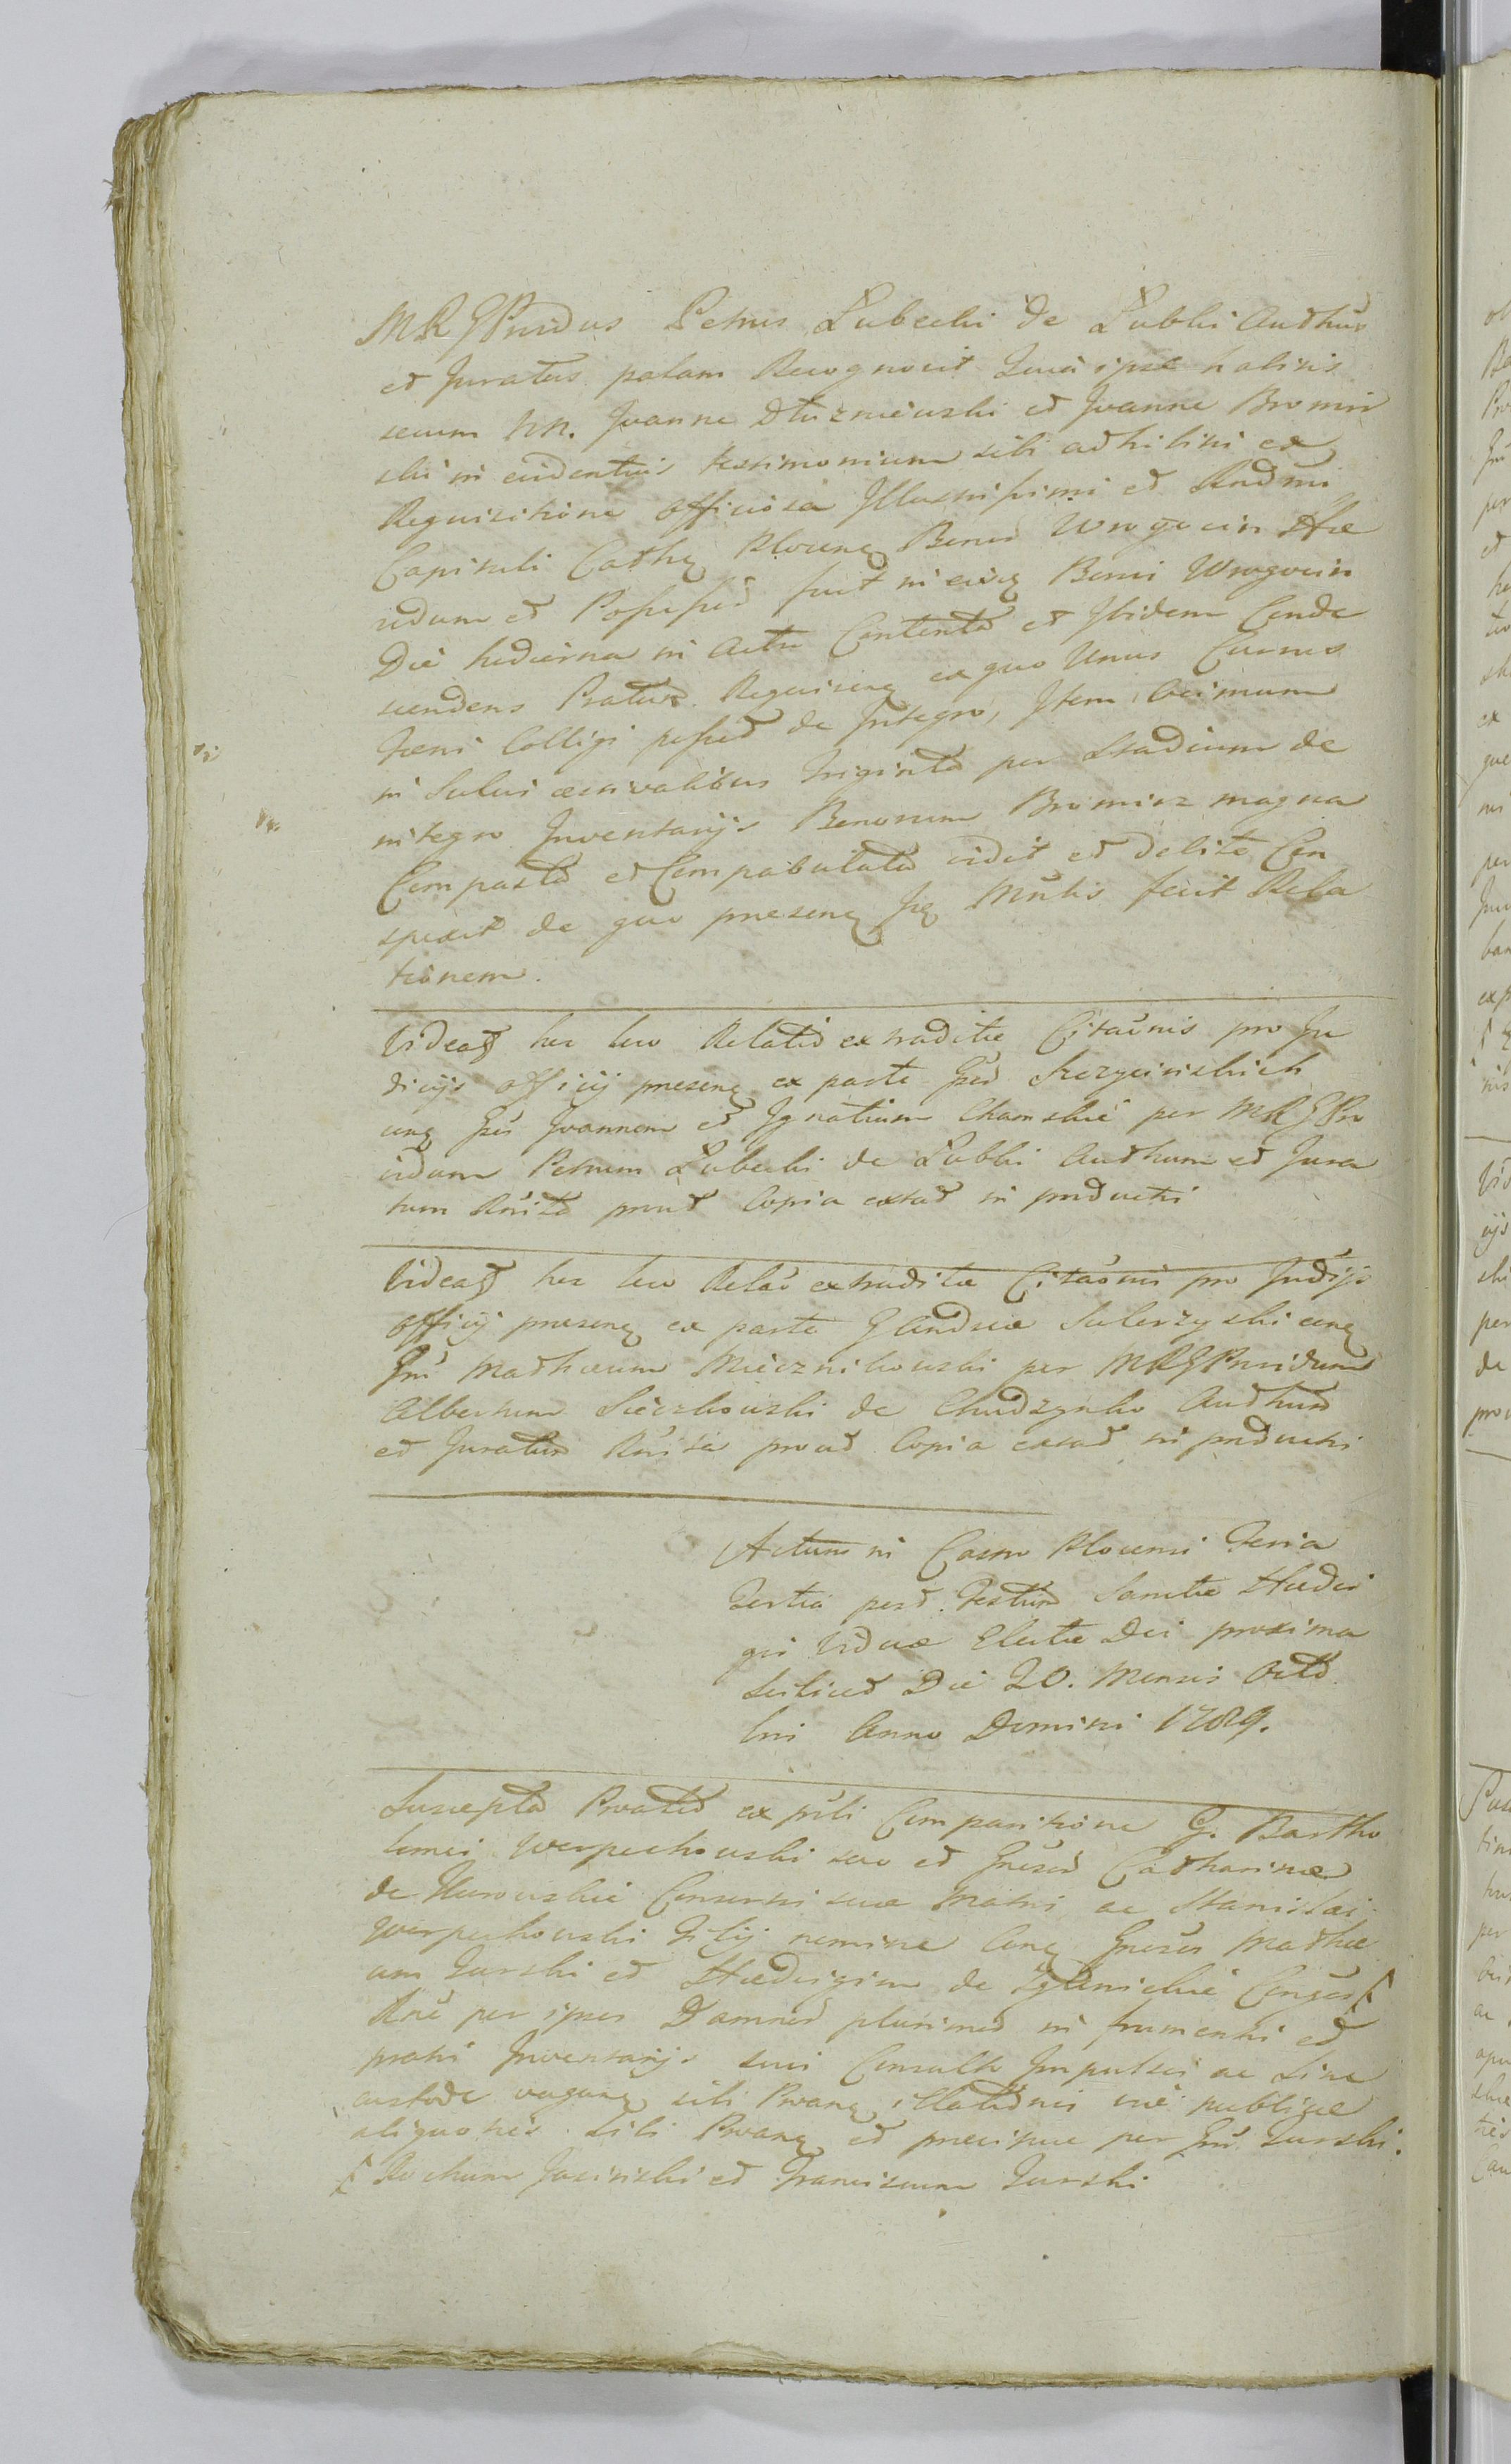 MRGPrvidus Petrus Łubecki de Łubki Authūs
et Juratus palam Recognovit Quia ipse habitis
secum NN. Joanne Dłuzniewski et Joanne Bromir
ski in evidentius testimonium sibi adhibitis ex
Requisitione officiosa Illustrissimi et Rndmi
Capituli Cathę Plocenę Bonis Wrogocin Hæ
redum et Possess fuit in eisę Bonis Wrogocin
Die hodierna in Actu Contenta et Ibidem Conde
scendens Pratum Requirenę ex quo Unus Currus
Fæni Colligi posset de Integro, Item Ocimum
in Sulcis æstivalibus triginta per Stadium de
integro Inventarijs Bonorum Bromirz magna
Compasta et Compabulata vidit et debite Con
spexit de quo presenę Srę Mntis fecit Rela
tionem.
Videatʒ hic loco Relatio extraditæ Citaōnis pro Ju
dicijs officij presenę ex parte Grōr Szczycinskich
conę Grōs Joannem et Ignatium Chamskie per MRGPro
vidum Petrum Łubecki de Łubki Authum et Jura
tum Rnita prout Copia extat in productis
Videatʒ hic loco Relaō extraditæ Citaōnis pro Judijs
officij presenę ex parte G Andreæ Sulerzyski conę
Grm Mathæum Miecznikowski per MRGPrvidum
Albertum Sieczkowski de Chudzynko Authum
et Juratum Rnita prout Copia extat in productis
Actum in Castro Plocensi Feria
Tertia post Festum Sanctæ Hedvi
gis Viduæ Electæ Dei proxima
Scilicet Die 20. Mensis Octo
bris Anno Domini 1789.
Suscepta Proate ex prsti Comparitione G. Bartho
lomei Werpechowski suo et Grosæ Catharinæ
de Murowskie Consortis suæ Matris ac Stanislai
Werpechowski Filij nomine Conę Grosos Mathæ
um Turski et Hedvigim de Zglenickie Conges
Rne per ipsos Damnor plurimor in frumentis et
pratis Inventarijs suis Consulto Impulsis ac Sine
custode vaganę sibi Proanę illatōnis viæ publicæ
aliquo hēs Sibi Proanę et præcipue per Grm Turski.
Rochum Jasinski et Franciscum Turski